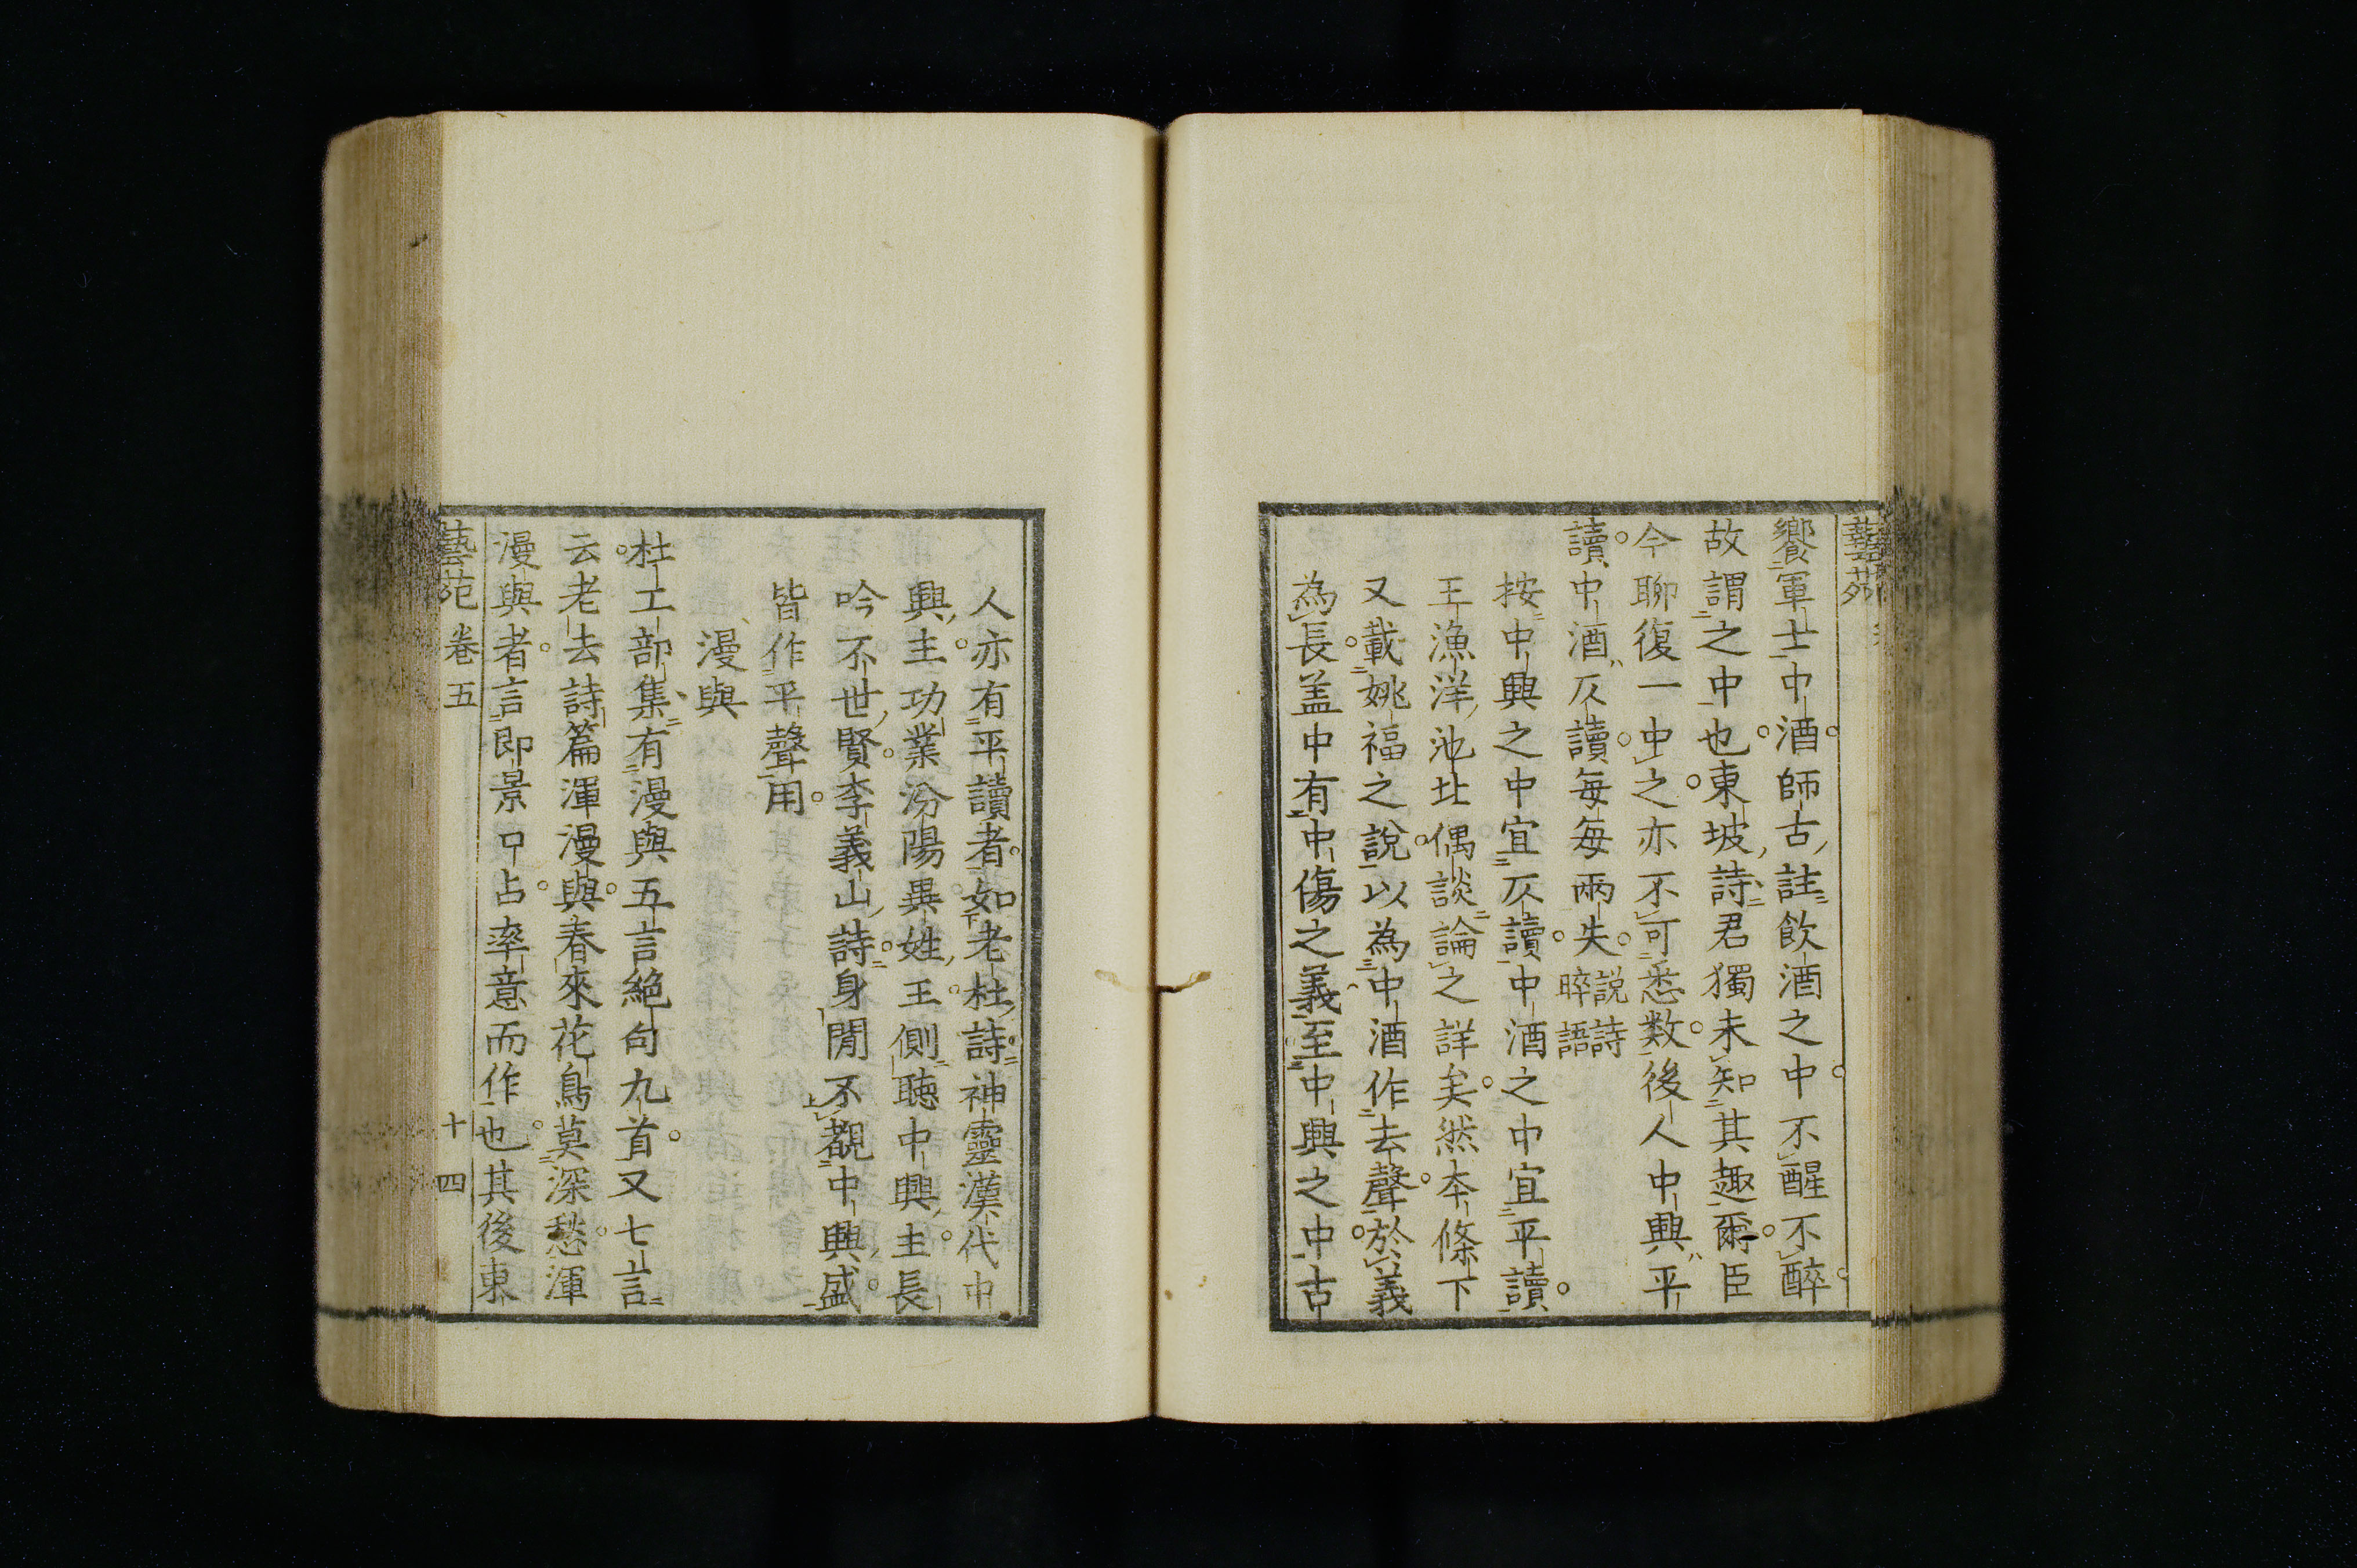 藝苑
饗軍士中酒師古註飲酒之中不醒不醉
故謂之中也東坡詩君獨未知其趣爾臣
今聊復一中之亦不可悉数後人中興平
讀中酒仄讀每每兩失説詩晬語
按中興之中宜仄讀中酒之中宜平讀
王漁洋池北偶談論之詳矣然本條下
又載姚福之說以為中酒作去聲於義
為長盖中有中傷之義至中興之中古
人亦有平讀者如老杜詩神靈漢代中
興主功業汾陽異姓王側聴中興主長
吟不世賢李義山詩身閒不覩中興盛
皆作平聲用
漫與
杜工部集有漫與五言絕句九首又七言
云老去詩篇渾漫與春來花鳥莫深愁渾
漫與者言即景口占率意而作也其後東
藝苑 卷五 十四